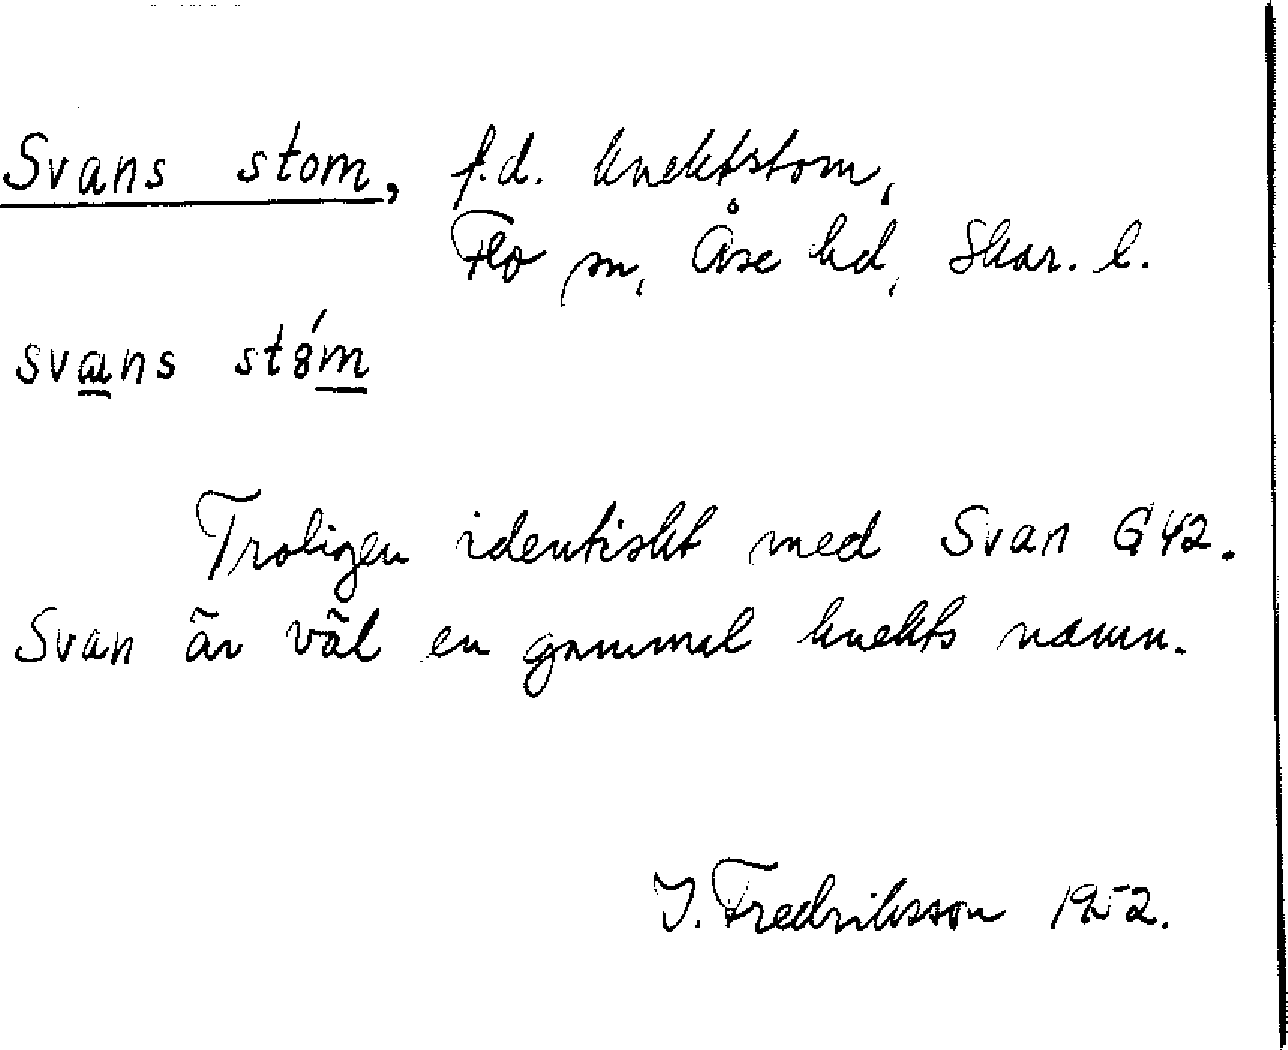 Svans stom, f.d. knektstom,
Flo sn, Åse hd, Skar. l.
svans stom
Troligen identiskt med Svan G 42.
Svan är väl en gammal knekts namn.
J. Fredriksson 1952.